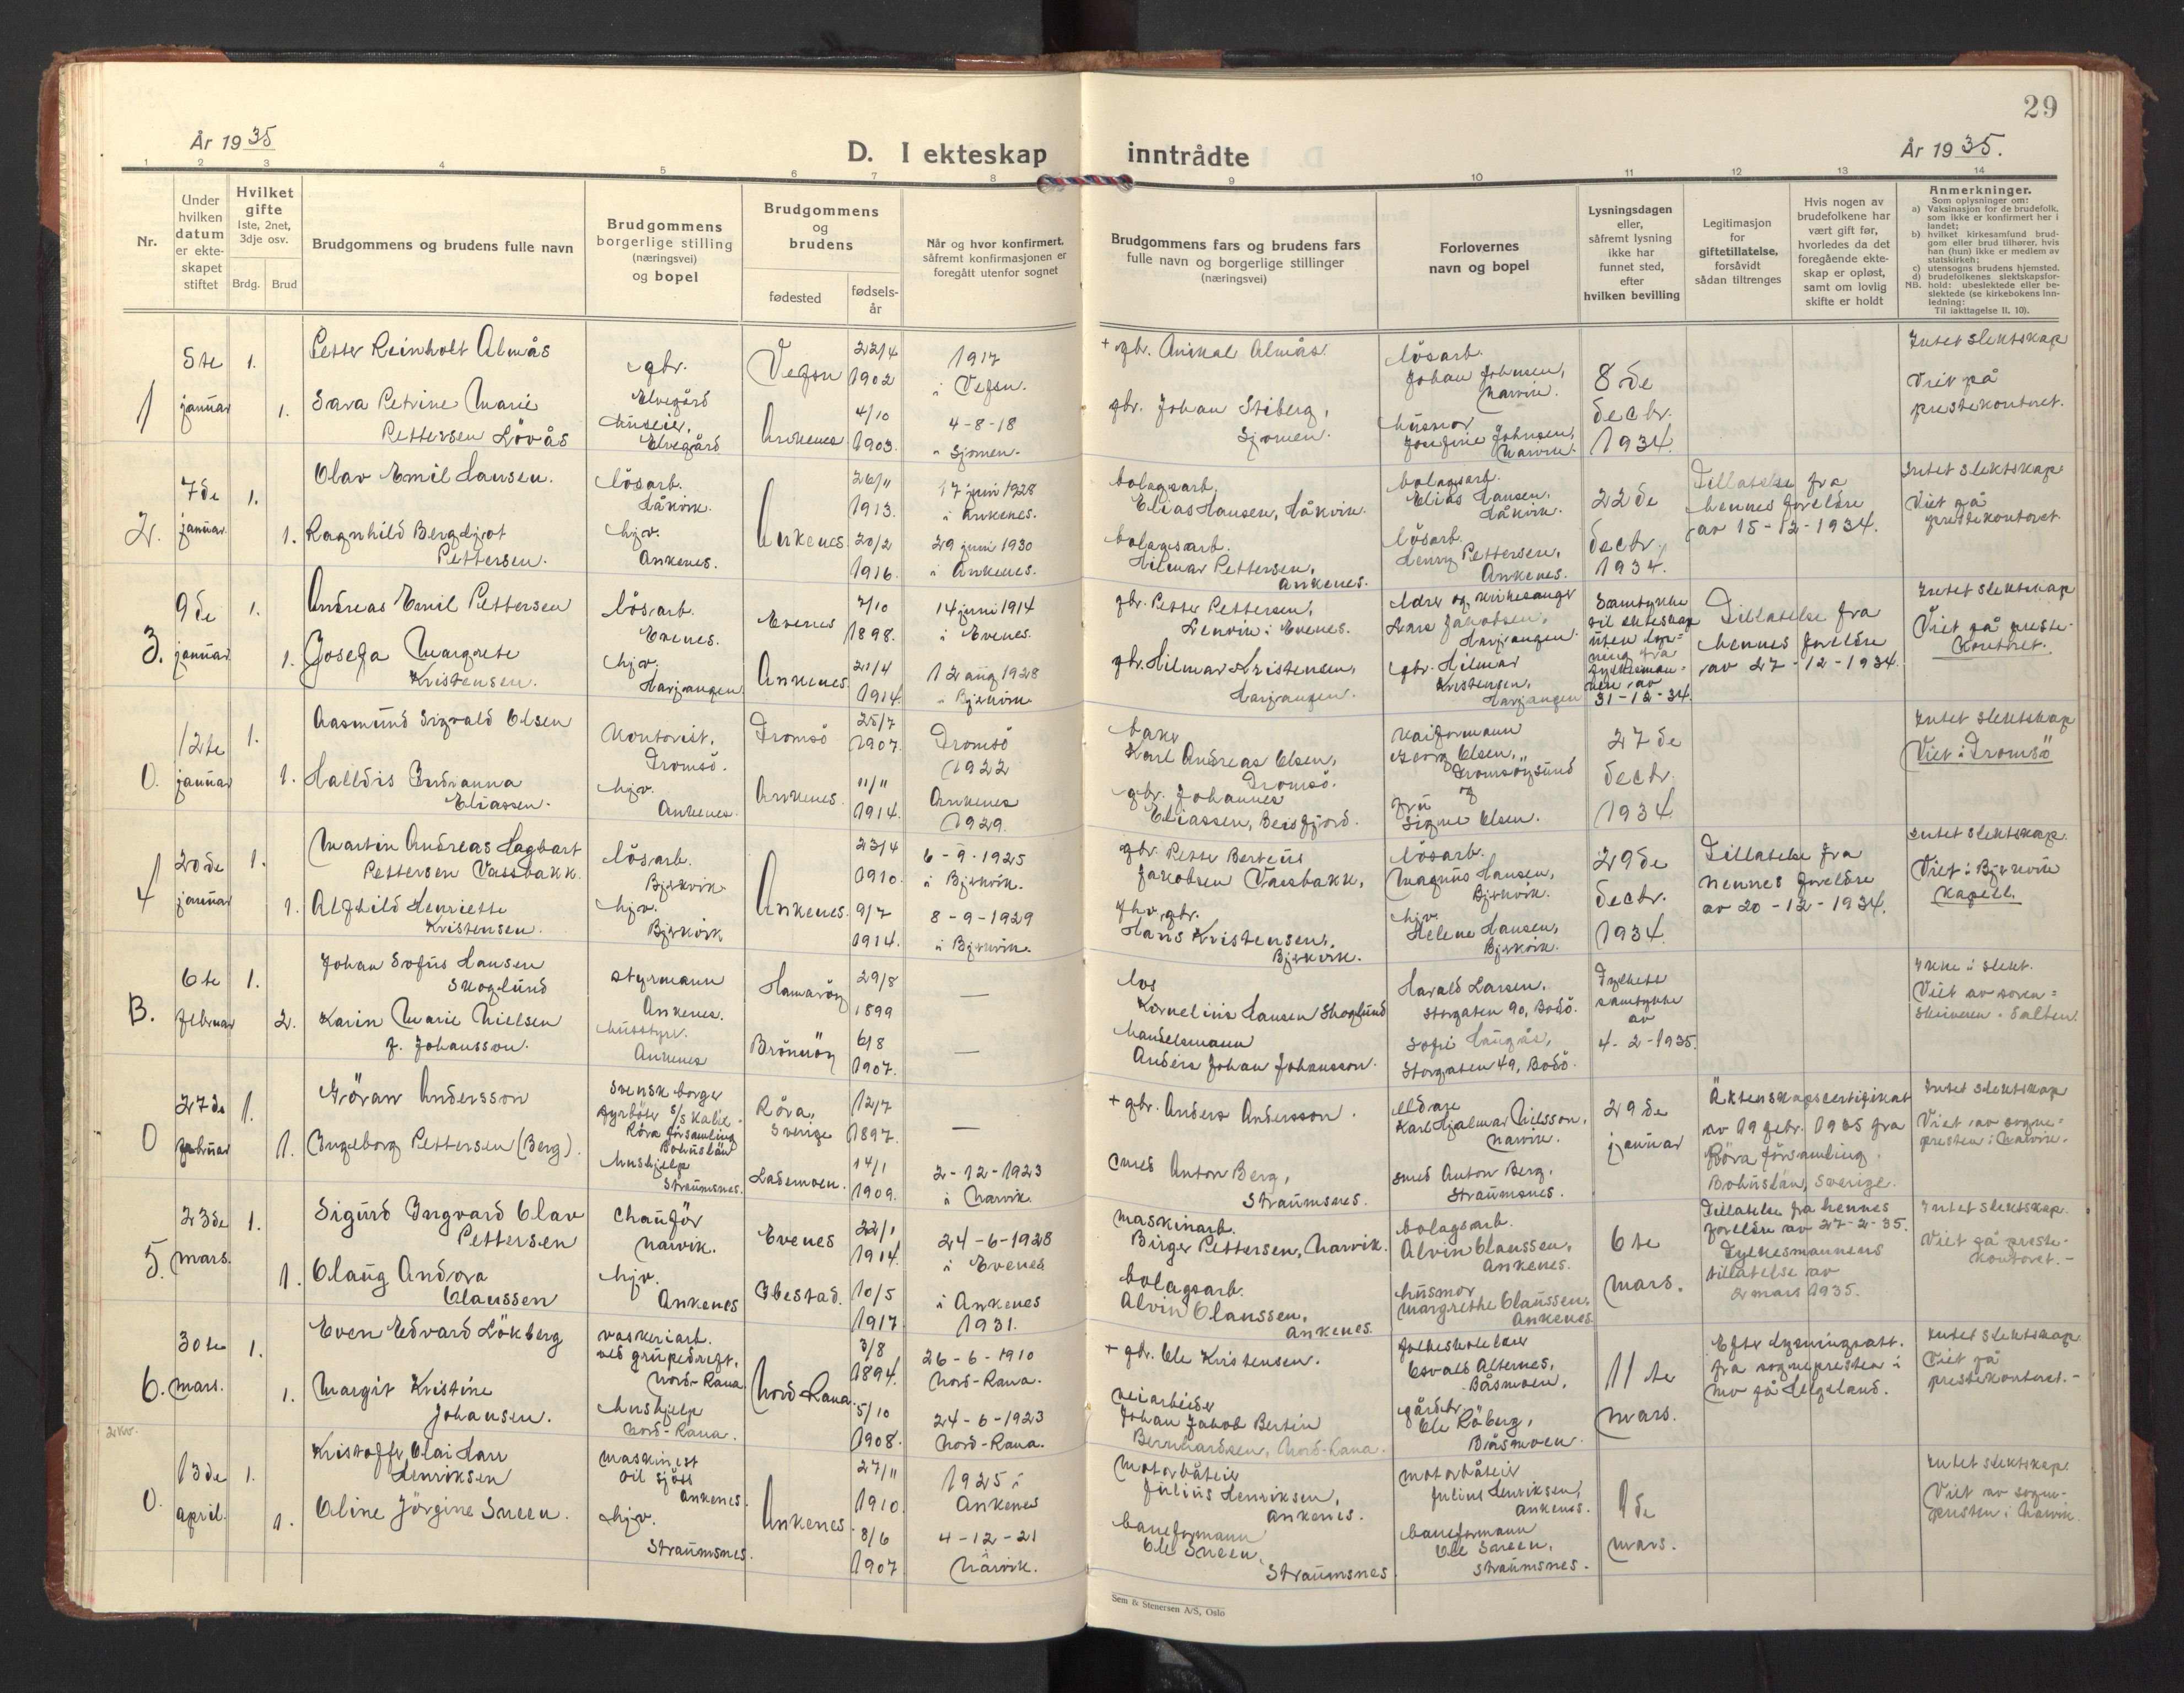 29
År 1935
D. I ekteskap inntrådte
År 1935.
1 2 3 4 5 6 7 8 9 10 11 12 13 14
Nr.
Under hvilken datum er ekteskapet stiftet
Hvilket gifte
1ste, 2net, 3dje osv.
Brdg. Brud
Brudgommens og brudens fulle navn
Brudgommens borgerlige stilling (næringsvei) og bopel
Brudgommens og brudens
fødested
fødselsår
Når og hvor konfirmert, såfremt konfirmasjonen er foregått utenfor sognet
Brudgommens fars og brudens fars fulle navn og borgerlige stillinger (næringsvei)
Forlovernes navn og bopel
Lysningsdagen eller, såfremt lysning ikke har funnet sted, efter hvilken bevilling
Legitimasjon for giftetillatelse, forsåvidt sådan tiltrenges
Hvis nogen av brudefolkene har vært gift før, hvorledes da det foregående ekteskap er opløst, samt om lovlig skifte er holdt
Anmerkninger.
Som oplysninger om:
a) Vaksinasjon for de brudefolk, som ikke er konfirmert her i landet;
b) hvilket kirkesamfund brudgom eller brud tilhører, hvis han (hun) ikke er medlem av statskirken;
c) utensogns brudens hjemsted.
d) brudefolkenes slektskapsforhold: ubeslektede eller beslektede (se kirkebokens Innledning:
NB.
Til iakttagelse II. 10).
1
5te januar
1.
1.
Petter Reinholt Almås
Sara Petrine Marie
Pettersen Lövås
gbr.
Elvegård
huseier,
Elvegård
Vefsn
Ankenes
22/4
1902
4/10
1903.
1917
i Vefsn.
4-8-18
i Sjomen.
+ gbr. Anikal Almås
gbr. Johan Stiberg,
Sjomen.
lösarb.
Johan Johnsen,
Narvik.
husmor
Josefine Johnsen,
Narvik.
8de
decbr.
1934.
Intet slektskap
Viet på
prestekontoret.
2.
7de januar
1.
1.
Olav Emil Hansen.
Ragnhild Bergljot
Pettersen.
lösarb.
Håkvik.
hjv.
Ankenes.
Ankenes.
26/11
1913.
20/2
1916.
17 juni 1928
i Ankenes.
29 juni 1930
i Ankenes.
bolagsarb.
Elias Hansen, Håkvik.
bolagsarb.
Hilmar Pettersen,
Ankenes.
bolagsarb.
Elias Hansen,
Håkvik.
lösarb.
Henry Pettersen,
Ankenes.
22de
decbr.
1934.
Tillatelse fra
hennes foreldre
av 15-12-1934.
Intet slektskap
Viet på
prestekontoret
3.
9de januar
1.
1.
Andreas Emil Pettersen
Josefa Margrete
Kristensen.
lösarb.
Evenes.
hjv.
Harjangen
Evenes
Ankenes
7/10
1898.
21/4
1914.
14 juni 1914
i Evenes.
12 aug 1928
i Bjerkvik
gbr. Petter Pettersen,
Lenvik i Evenes.
gbr. Hilmar Kristensen,
Harjangen.
lærer og kirkesanger
Lars Jakobsen,
Harjangen
gbr. Hilmar
Kristensen,
Harjangen
Samtykke
til ekteskap
uten lys-
ning fra
fylkesman-
nen av
31-12-34.
Tillatelse fra
hennes foreldre
av 27-12-1934.
Intet slektskap
Viet på preste-
kontoret.
0.
12te januar
1.
1.
Aasmund Sigvald Olsen
Halldis Indianna
Eliassen.
Kontorist,
Tromsö.
hjv.
Ankenes.
Tromsö
Ankenes.
25/7
1907.
11/11
1914.
Tromsö
1922
Ankenes
1929.
baker
Karl Andreas Olsen,
Tromsö.
gbr. Johannes
Eliassen, Beisfjord.
Kaiformann
Georg Olsen,
Tromsöysund
Fru
Signe Olsen.
27de
decbr.
1934
Intet slektskap
Viet i Tromsö
4
20de januar
1.
1.
Martin Andreas Hagbart
Pettersen Vassbakk.
Alfhild Henriette
Kristensen.
lösarb.
Bjerkvik
hjv.
Bjerkvik
Ankenes.
23/4
1910.
9/7
1914.
6-9-1925
i Bjerkvik.
8-9-1929
i Bjerkvik.
gbr. Petter Berteus
Jakobsen Vassbakk,
fhv. gbr.
Hans Kristensen,
Bjerkvik.
lösarb.
Magnus Hansen,
Bjerkvik.
hjv.
Helene Hansen,
Bjerkvik.
29de
decbr.
1934.
Tillatelse fra
hennes foreldre
av 20-12-1934.
Intet slektskap.
Viet i Bjerkvik
kapell.
B.
6te februar
1.
2.
Johan Sofus Hansen
Skoglund
Karin Marie Nielsen
f. Johansson.
styrmann
Ankenes.
husstyr.
Ankenes
Hamaröy
Brönnöy
29/8
1899
6/8
1907.
—
—
los
Kornelius Hansen Skoglund
handelsmann
Anders Johan Johansson.
Harald Larsen,
Storgaten 90, Bodö.
Sofie Haugås,
Storgaten 49, Bodö.
Fylkets
samtykke
av
4-2-1935.
Ikke i slekt.
Viet av soren-
skriveren i Salten.
0
27de februar
1.
1.
Göran Andersson
Ingeborg Pettersen (Berg).
Svensk borger
fyrböter s/s Kalix
Röra församling
Bohuslän
hushjelp
Straumsnes.
Röra,
Sverige
Laksemoen.
12/7
1897.
14/1
1909.
—
2-12-1923
i Narvik.
+ gbr. Anders Andersson.
smed Anton Berg,
Straumsnes.
eldare
Karl Hjalmar Nilsson,
Narvik.
smed Anton Berg,
Straumsnes.
29de
januar
Äktenskapscertifikat
av 19 febr. 1935 fra
Röra församling,
Bohuslän, Sverige.
Intet slektskap
Viet av sogne-
presten i Narvik.
5.
23de mars.
1.
1.
Sigurd Ingvard Olav
Pettersen
Olaug Andora
Claussen
Chauför
Narvik.
hjv.
Ankenes
Evenes
Ibestad.
22/1
1914.
10/5
1917.
24-6-1928
i Evenes
i Ankenes
1931.
maskinarb.
Birger Pettersen, Narvik.
bolagsarb.
Alvin Claussen,
Ankenes.
bolagsarb.
Alvin Claussen,
Ankenes.
husmor
Margrethe Claussen,
Ankenes
6te
mars.
Tillatelse fra hennes
foreldre av 27-2-35.
Fylkesmannens
tillatelse av
2 mars 1935.
Intet slektskap.
Viet på preste-
kontoret.-
6.
30te mars.
1.
1.
Even Edvard Lökberg
Margit Kristine
Johansen.
vaskeriarb.
ved grubedrift,
Nord-Rana
hushjelp
Nord-Rana.
Nord Rana
3/8
1894.
5/10
1908.
26-6-1910
Nord-Rana.
24-6-1923
Nord-Rana.
+ gbr. Ole Kristensen.
veiarbeider
Johan Jakob Bertin
Bernhardsen, Nord-Rana.
Osvald Alternes,
Båsmoen,
gårdbr.
Ole Röberg,
Båsmoen.
11te
mars.
Efter lysningsatt.
fra sognepresten i
Mo på Helgeland.
Intet slektskap.
Viet på
prestekontoret.-
2 kv.
0.
13de april.
1.
1.
Kristoffer Olai Harr
Henriksen
Oline Jörgine Sneen.
maskinist
til sjöss
Ankenes.
hjv.
Straumsnes.
Ankenes
27/11
1910.
8/6
1907
1925 i
Ankenes
4-12-21
Narvik.
motorbåteier
Julius Henriksen,
Ankenes.
baneformann
Ole Sneen,
Straumsnes
motorbåteier
Julius Henriksen,
Ankenes.
baneformann
Ole Sneen,
Straumsnes.
9de
mars.
Intet slektskap.
Viet av sogne-
presten i Narvik.
Sem & Stenersen A/S, Oslo